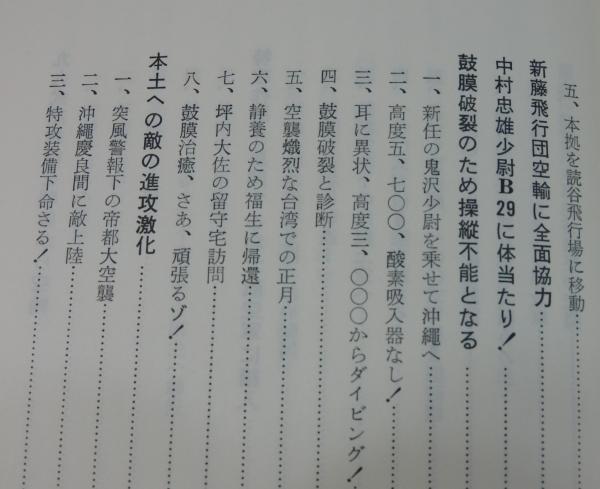 五、本拠を読谷飛行場に移動……………
新藤飛行団空輸に全面協力……………
中村忠雄少尉B29に体当たり！……………
鼓膜破裂のため操縦不能となる……………
一、新任の鬼沢少尉を乗せて沖縄へ……………
二、高度五、七〇〇、酸素吸入器なし！……………
三、耳に異状、高度三、〇〇〇からダイビング！……………
四、鼓膜破裂と診断……………
五、空襲熾烈な台湾での正月……………
六、静養のため福生に帰還……………
七、坪内大佐の留守宅訪問……………
八、鼓膜治癒、さあ、頑張るゾ！……………
本土への敵の進攻激化……………
一、突風警報下の帝都大空襲……………
二、沖縄慶良間に敵上陸……………
三、特攻装備下命さる！……………